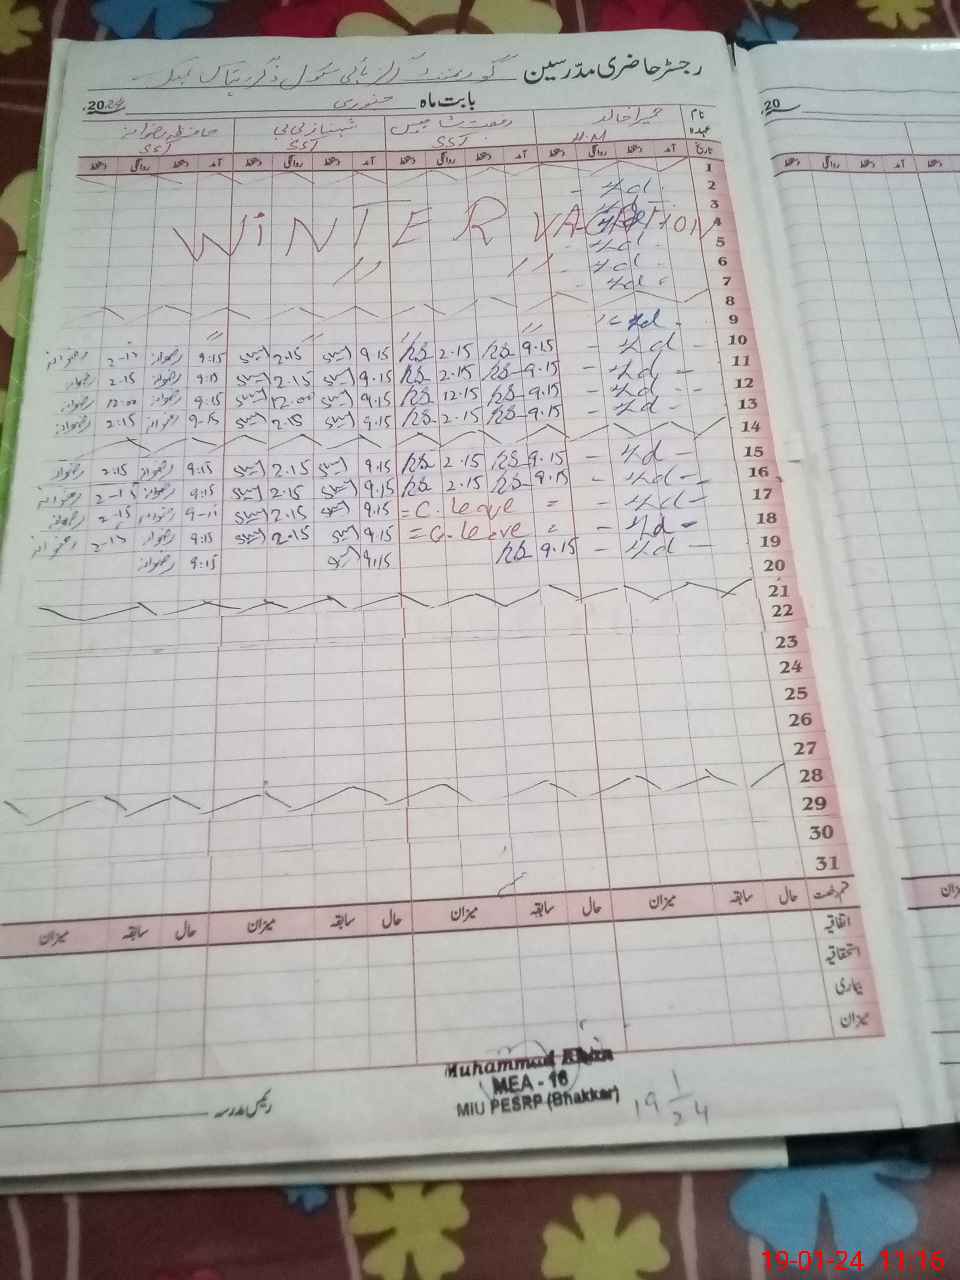 رجسٹر حاضری مدرسین گورنمنٹ گرلز ہائی سکول
بابت ماہ جنوری 2024
نام عہدہ حمیرا خالد H.M رفعت شاہین SST شہناز بی بی SST حافظہ رضوانہ SST
تاریخ آمد دستخط روانگی دستخط آمد دستخط روانگی دستخط آمد دستخط روانگی دستخط آمد دستخط روانگی دستخط
1
2
3
WINTER VACATION 4
5
6
7
8
9
10 9.15 2.15 9.15 2.15 9.15 رضوانہ 2-15 رضوانہ
11 9.15 2.15 9.15 2.15 9.15 رضوانہ 2.15 رضوانہ
12 9.15 12.15 9.15 12.00 9.15 رضوانہ 12.00 رضوانہ
13 9.15 2.15 9.15 2.15 9-15 رضوانہ 2.15 رضوانہ
14
15 9.15 2.15 9.15 2.15 9.15 رضوانہ 2.15 رضوانہ
16 9.15 2.15 9.15 2.15 9.15 رضوانہ 2-15 رضوانہ
17 = C. leave = 9.15 2.15 9-15 رضوانہ 2-15 رضوانہ
18 = C. leave = 9.15 2.15 9.15 رضوانہ 2-15 رضوانہ
19 9.15 9.15 9.15 رضوانہ
20
21
22
23
24
25
26
27
28
29
30
31
قسم رخصت حال سابقہ میزان حال سابقہ میزان حال سابقہ میزان حال سابقہ میزان
اتفاقیہ
استحقاقیہ
بیماری
میزان
Muhammad
MEA - 16
MIU PESRP (Bhakkar)
19/1/24
رئیس مدرسہ
20
دستخط روانگی دستخط
میزان
19-01-24 11:16